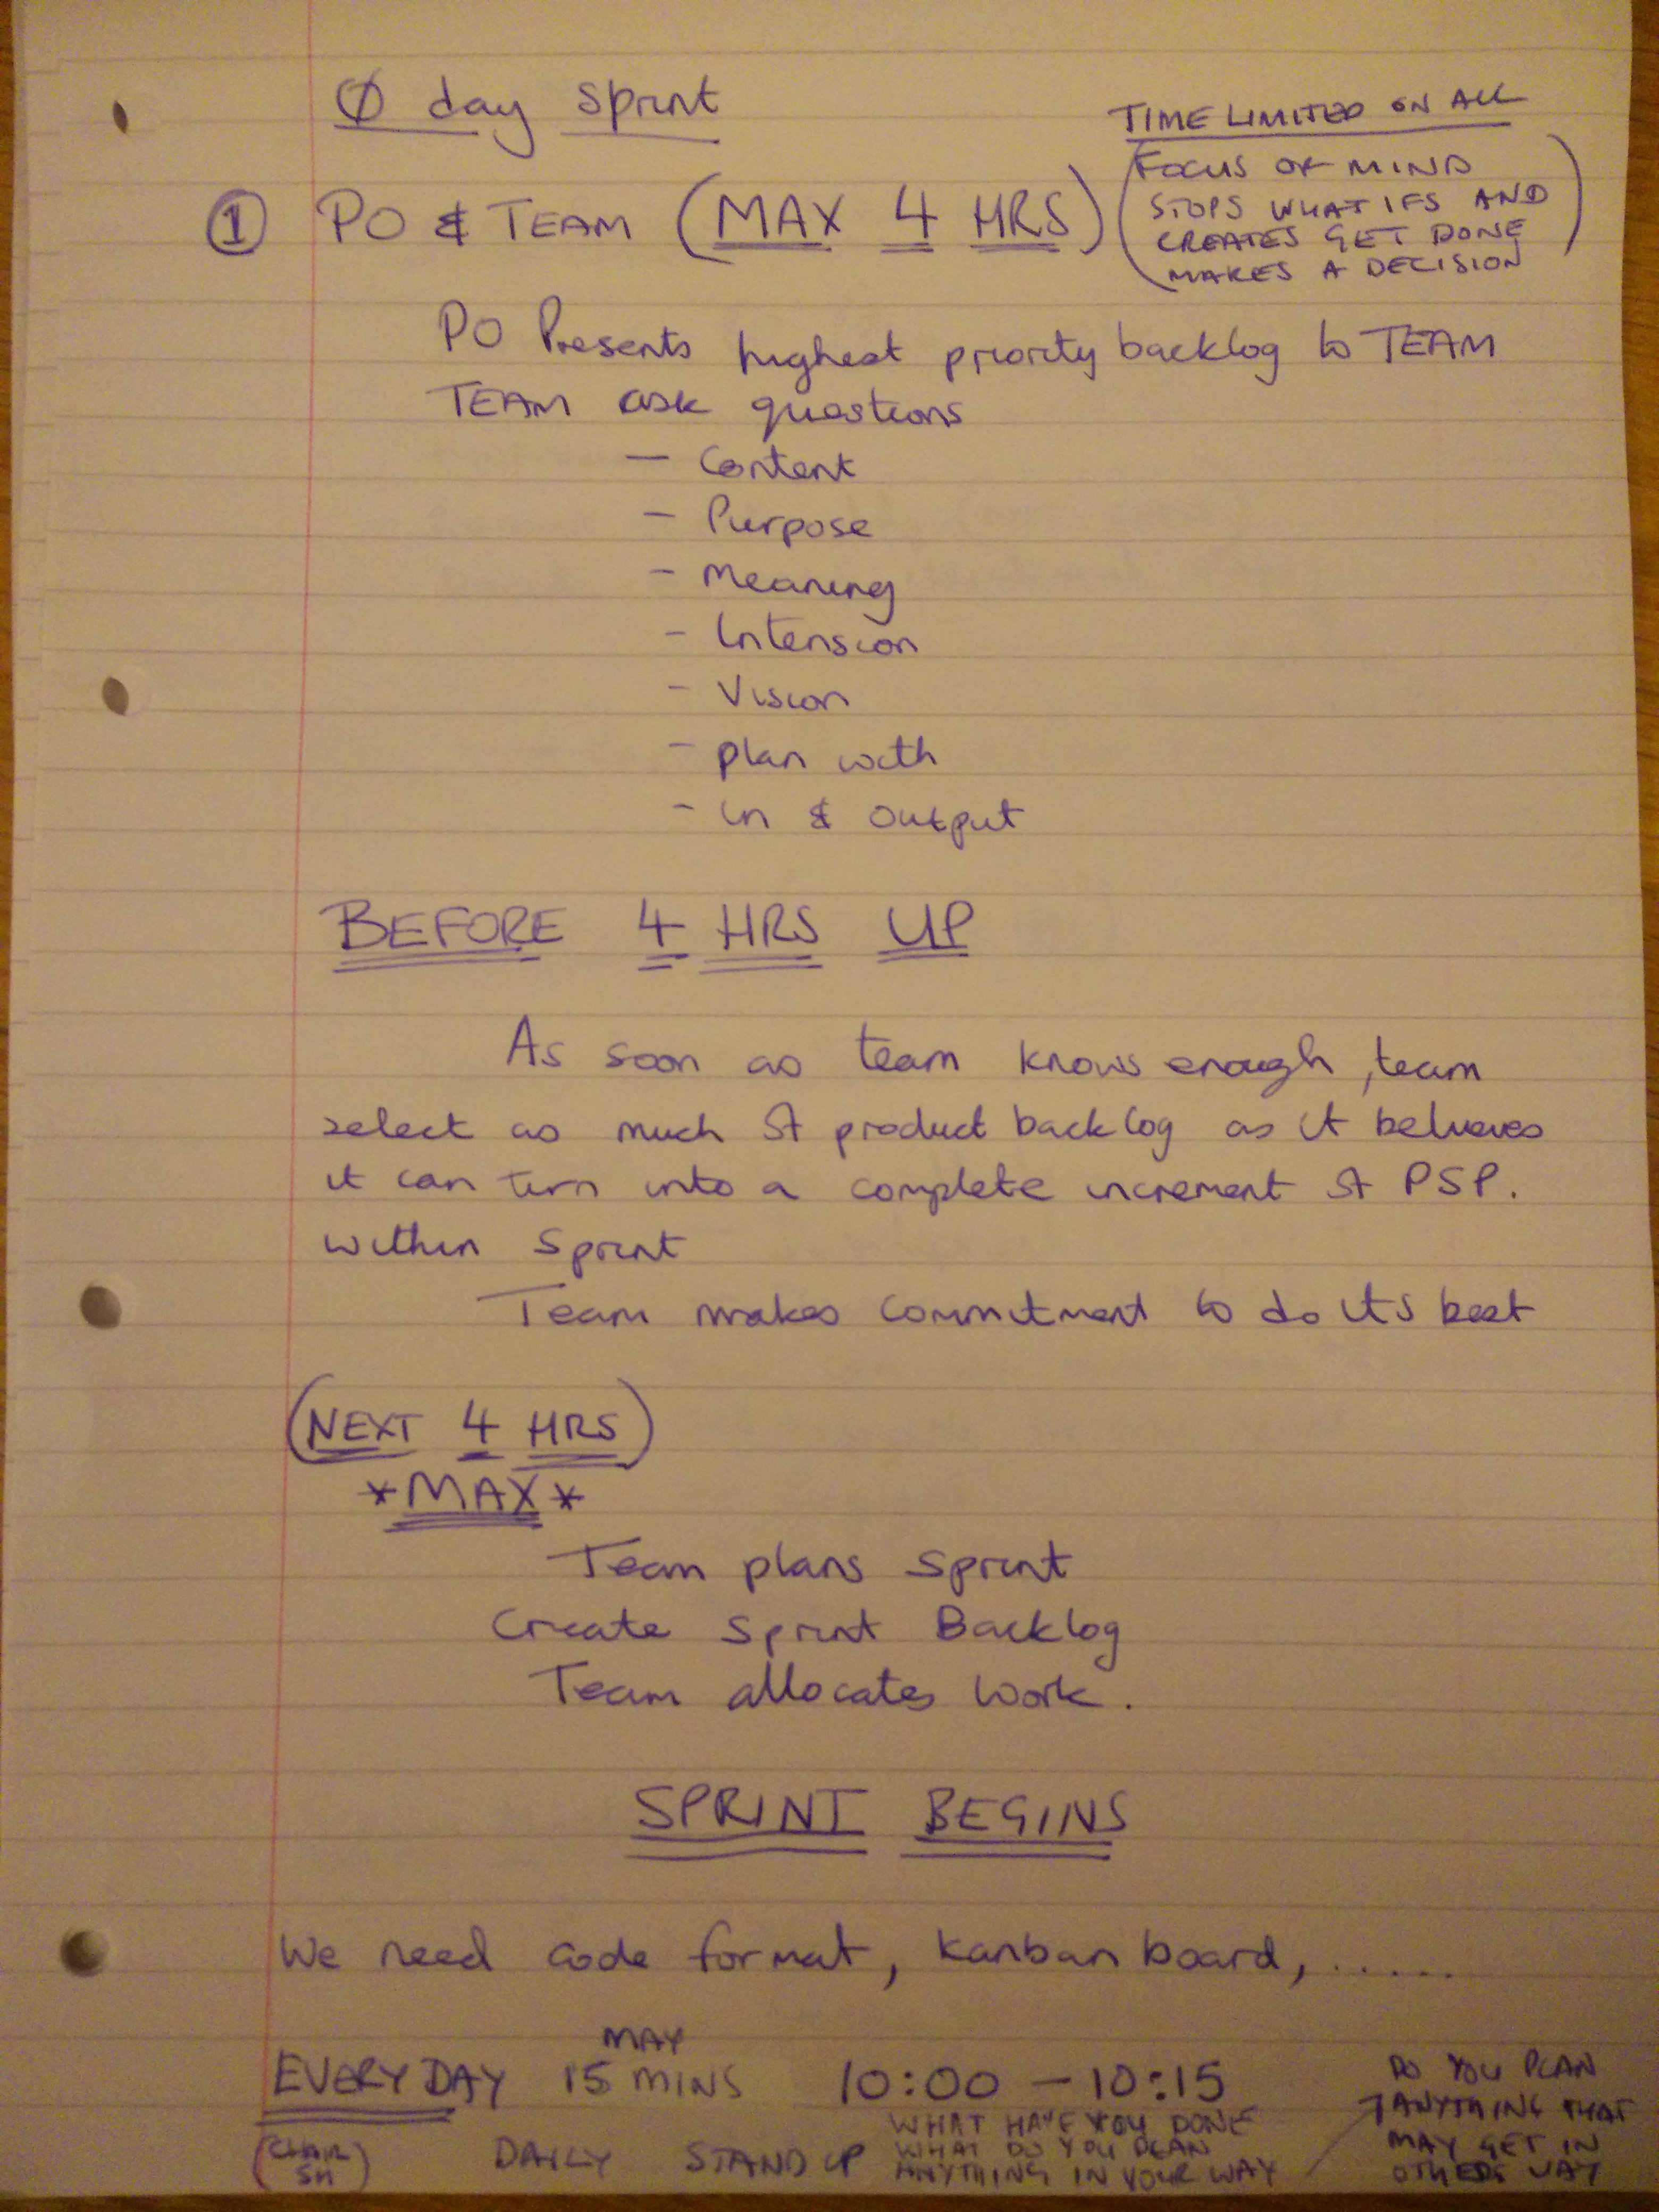 Ø day sprint
TIME LIMITED ON ALL
① PO & TEAM (MAX 4 HRS)
(FOCUS OF MIND
STOPS WHAT IFS AND
CREATES GET DONE
MAKES A DECISION)
PO Presents highest priority backlog to TEAM
TEAM ask questions
- Content
- Purpose
- Meaning
- Intension
- Vision
- plan with
- in & output
BEFORE 4 HRS UP
As soon as team knows enough, team
select as much of product backlog as it believes
it can turn into a complete increment of PSP.
within sprint
Team makes commitment to do its best
(NEXT 4 HRS)
*MAX*
Team plans sprint
Create Sprint Backlog
Team allocates work.
SPRINT BEGINS
We need code format, kanban board, ......
MAX
EVERY DAY 15 MINS 10:00 - 10:15
(CHAIR
SM)
DAILY STAND UP
WHAT HAVE YOU DONE
WHAT DO YOU PLAN
ANYTHING IN YOUR WAY
DO YOU PLAN
ANYTHING THAT
MAY GET IN
OTHERS WAY